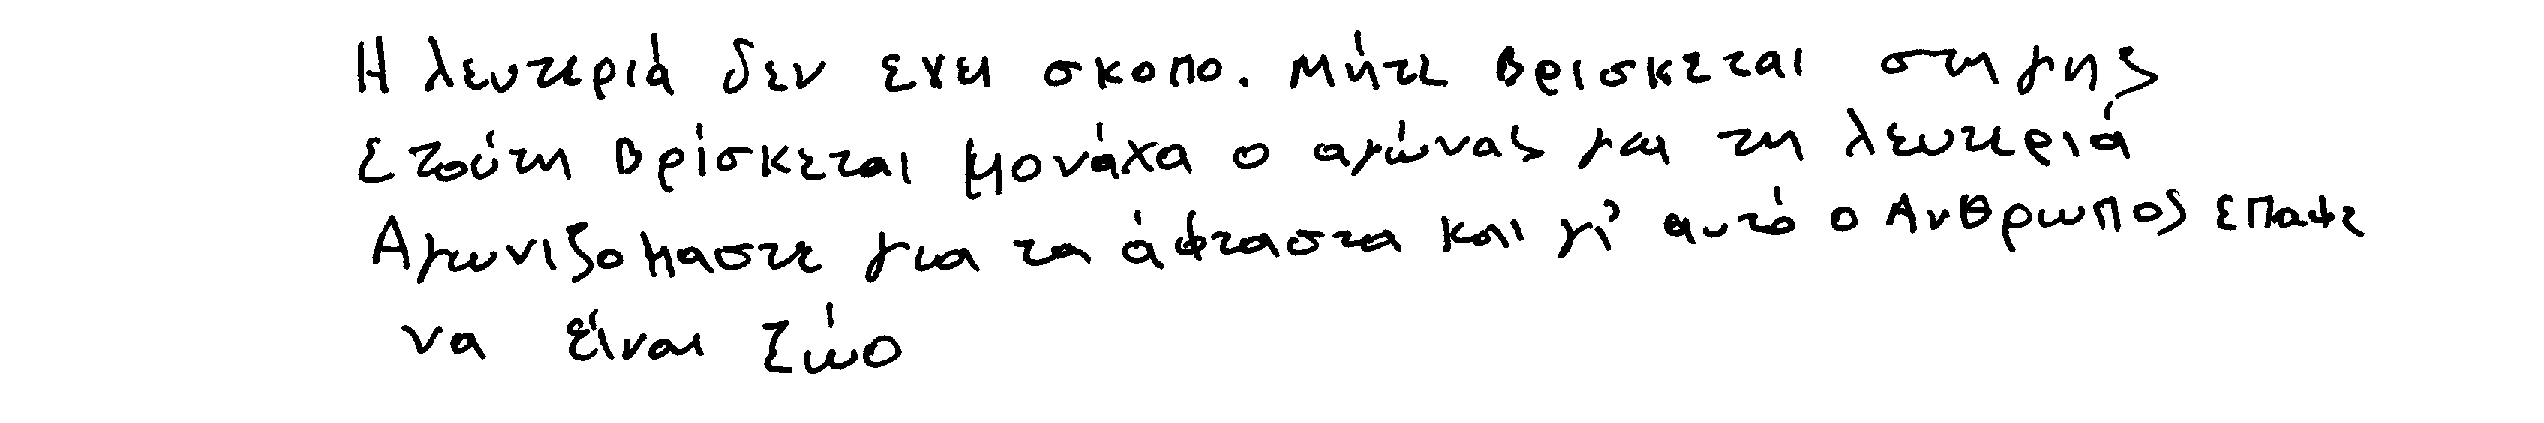 Η λευτεριά δεν εχει σκοπο. Μήτε βρισκεται στη γης
Ετούτη βρίσκεται μονάχα ο αγώνας για τη λευτεριά
Αγωνιζομαστε για τα άφταστα και γι' αυτό ο Ανθρωπος επαψε
να είναι ζώο